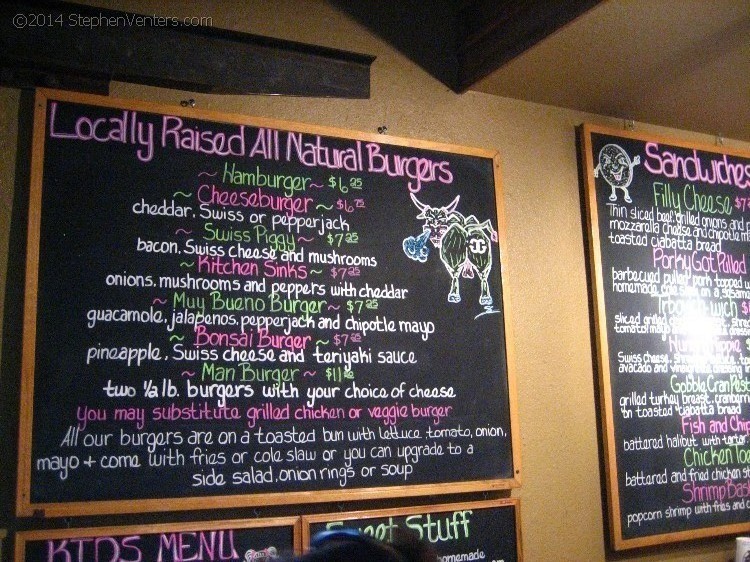 ©2014 StephenVenters.com
Locally Raised All Natural Burgers
~ Hamburger ~ $6.25
~ Cheeseburger ~ $6.75
cheddar, Swiss or pepperjack
~ Swiss Piggy ~ $7.25
bacon, Swiss cheese and mushrooms
~ Kitchen Sinks ~ $7.25
onions, mushrooms and peppers with cheddar
~ Muy Bueno Burger ~ $7.25
guacamole, jalapenos, pepperjack and chipotle mayo
~ Bonsai Burger ~ $7.25
pineapple, Swiss cheese and teriyaki sauce
~ Man Burger ~ $11
two ½ lb. burgers with your choice of cheese
you may substitute grilled chicken or veggie burger
All our burgers are on a toasted bun with lettuce, tomato, onion,
mayo + come with fries or cole slaw or you can upgrade to a
side salad, onion rings or soup
KIDS MENU
Sweet Stuff
homemade
Sandwiches
Filly Cheese
Thin sliced beef, grilled onions and
mozzarella cheese and chipotle
toasted ciabatta bread
Porky Got Pulled
barbecued pulled pork topped
homemade cole slaw on a sesame
sliced grilled
tomato, mayo
Swiss cheese,
avocado and
Gobble Cran
grilled turkey breast, cranberry
on toasted ciabatta bread
Fish and Chip
battered halibut with tartar
Chicken
battered and fried chicken
Shrimp
popcorn shrimp with fries and